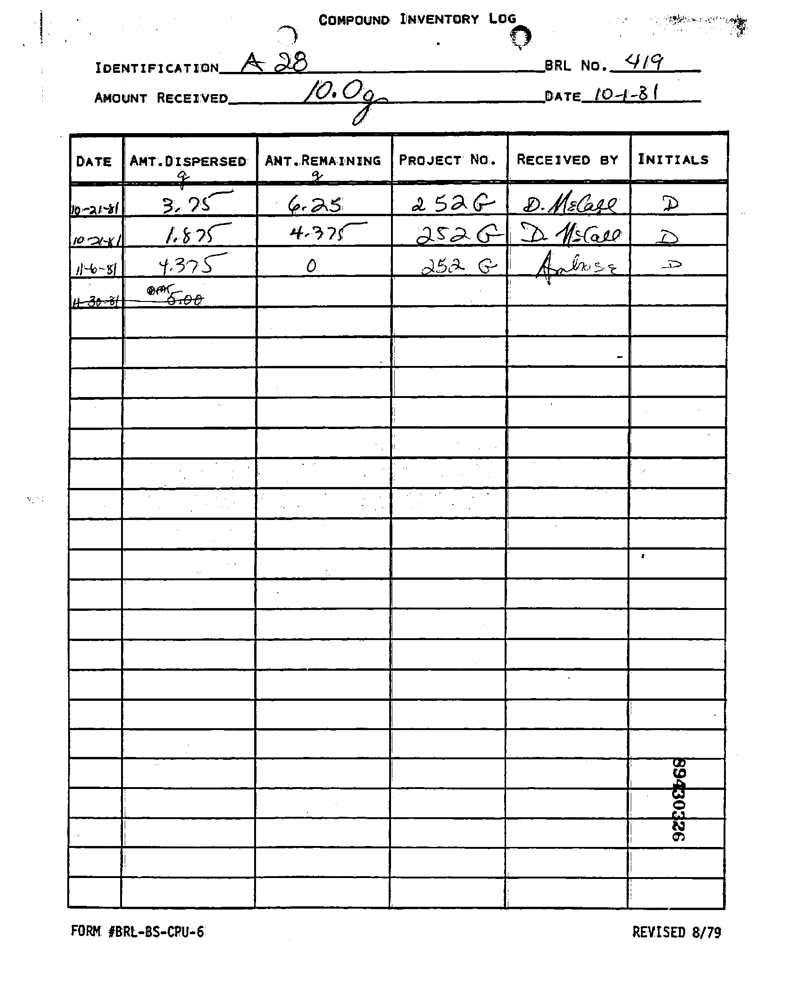 COMPOUND INVENTORY LOG
IDENTIFICATION A 28 BRL NO. 419
AMOUNT RECEIVED 10.0g DATE 10-1-81
DATE AMT.DISPERSED g AMT.REMAINING g PROJECT NO. RECEIVED BY INITIALS
10-21-81 3.75 6.25 252G D. McCall D
10-21-81 1.875 4.375 252G D. McCall D
11-6-81 4.375 0 252 G Ambrose D
11-30-81 5.00
89430326
FORM #BRL-BS-CPU-6 REVISED 8/79